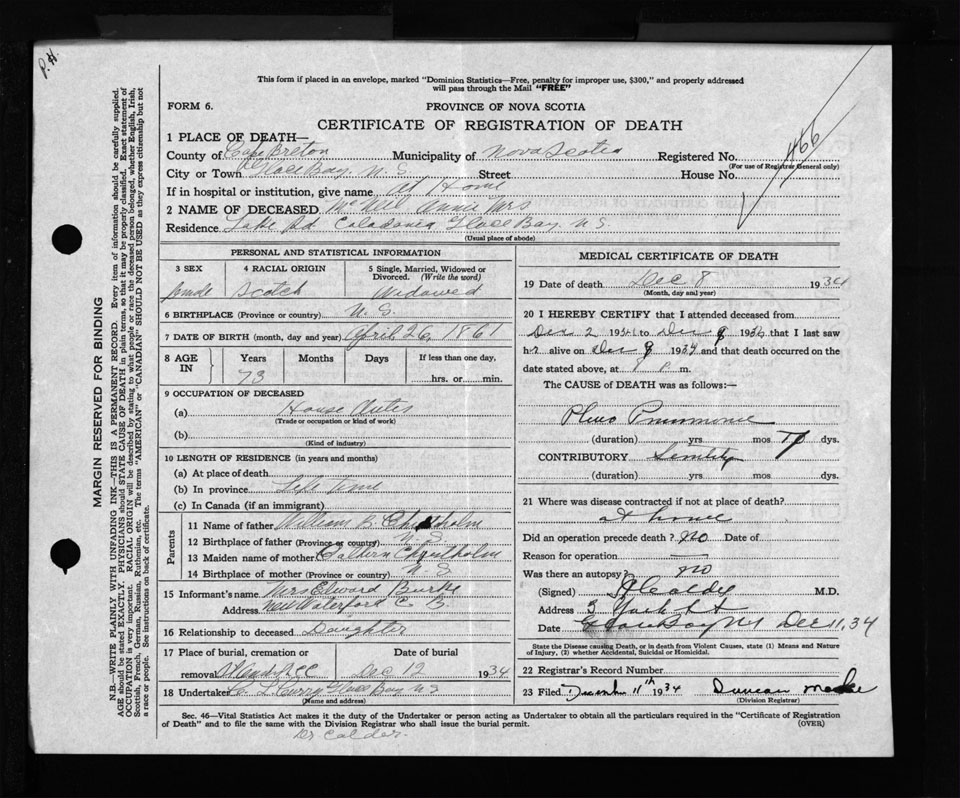 P.H.
This form if placed in an envelope, marked "Dominion Statistics—Free, penalty for improper use, $300," and properly addressed
will pass through the Mail "FREE"
FORM 6.
PROVINCE OF NOVA SCOTIA
CERTIFICATE OF REGISTRATION OF DEATH
466
1 PLACE OF DEATH—
County of Cape Breton Municipality of Nova Scotia Registered No.
(For use of Registrar General only)
City or Town Glace Bay, N. S. Street House No.
If in hospital or institution, give name At Home
2 NAME OF DECEASED Annie Mrs
Residence Lake Rd Caledonia Glace Bay N.S.
(Usual place of abode)
PERSONAL AND STATISTICAL INFORMATION
3 SEX 4 RACIAL ORIGIN 5 Single, Married, Widowed or Divorced. (Write the word)
female Scotch Widowed
6 BIRTHPLACE (Province or country) N. S.
7 DATE OF BIRTH (month, day and year) April 26, 1861
8 AGE IN Years Months Days If less than one day,
73 hrs. or min.
9 OCCUPATION OF DECEASED
(a) House
(Trade or occupation or kind of work)
(b)
(Kind of industry)
10 LENGTH OF RESIDENCE (in years and months)
(a) At place of death
(b) In province Life time
(c) In Canada (if an immigrant)
Parents
11 Name of father William B. Chisholm
12 Birthplace of father (Province or country) N. S.
13 Maiden name of mother Chisholm
14 Birthplace of mother (Province or country) N. S.
15 Informant's name Mrs Edward Burke
Address New Waterford C. B.
16 Relationship to deceased Daughter
17 Place of burial, cremation or Date of burial
removal Dec 12 1934
18 Undertaker Curry Glace Bay N S
(Name and address)
MEDICAL CERTIFICATE OF DEATH
19 Date of death Dec 8 1934
(Month, day and year)
20 I HEREBY CERTIFY that I attended deceased from
Dec 2 1934 to Dec 8 1934, that I last saw
h alive on Dec 8 1934 and that death occurred on the
date stated above, at 8 P. m.
The CAUSE of DEATH was as follows:—
Pneumonia
(duration) yrs mos dys.
CONTRIBUTORY Senility
(duration) yrs mos dys.
21 Where was disease contracted if not at place of death?
at home
Did an operation precede death? No Date of
Reason for operation
Was there an autopsy? no
(Signed) Calder M.D.
Address 3 York St
Date Glace Bay NS Dec 11, 34
State the Disease causing Death, or in death from Violent Causes, state (1) Means and Nature
of Injury, (2) whether Accidental, Suicidal or Homicidal.
22 Registrar's Record Number
23 Filed December 11th 1934 Duncan
(Division Registrar)
Sec. 46—Vital Statistics Act makes it the duty of the Undertaker or person acting as Undertaker to obtain all the particulars required in the "Certificate of Registration
of Death" and to file the same with the Division Registrar who shall issue the burial permit. (OVER)
Dr Calder.
MARGIN RESERVED FOR BINDING
N.B.—WRITE PLAINLY WITH UNFADING INK—THIS IS A PERMANENT RECORD. Every item of information should be carefully supplied.
AGE should be stated EXACTLY. PHYSICIANS should STATE CAUSE OF DEATH in plain terms, so that it may be properly classified. Exact statement of
OCCUPATION is very important. RACIAL ORIGIN will be described by stating to what people or race the deceased person belonged, whether English, Irish,
Scottish, French, German, Russian, Ruthenian, etc. The terms "AMERICAN" or "CANADIAN" SHOULD NOT BE USED as they express citizenship but not
a race or people. See instructions on back of certificate.